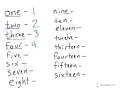 one - 1
two - 2
three - 3
Four - 4
Five -
six -
seven -
eight -
nine -
ten -
eleven -
twelve -
thirteen -
Fourteen -
fifteen -
sixteen -